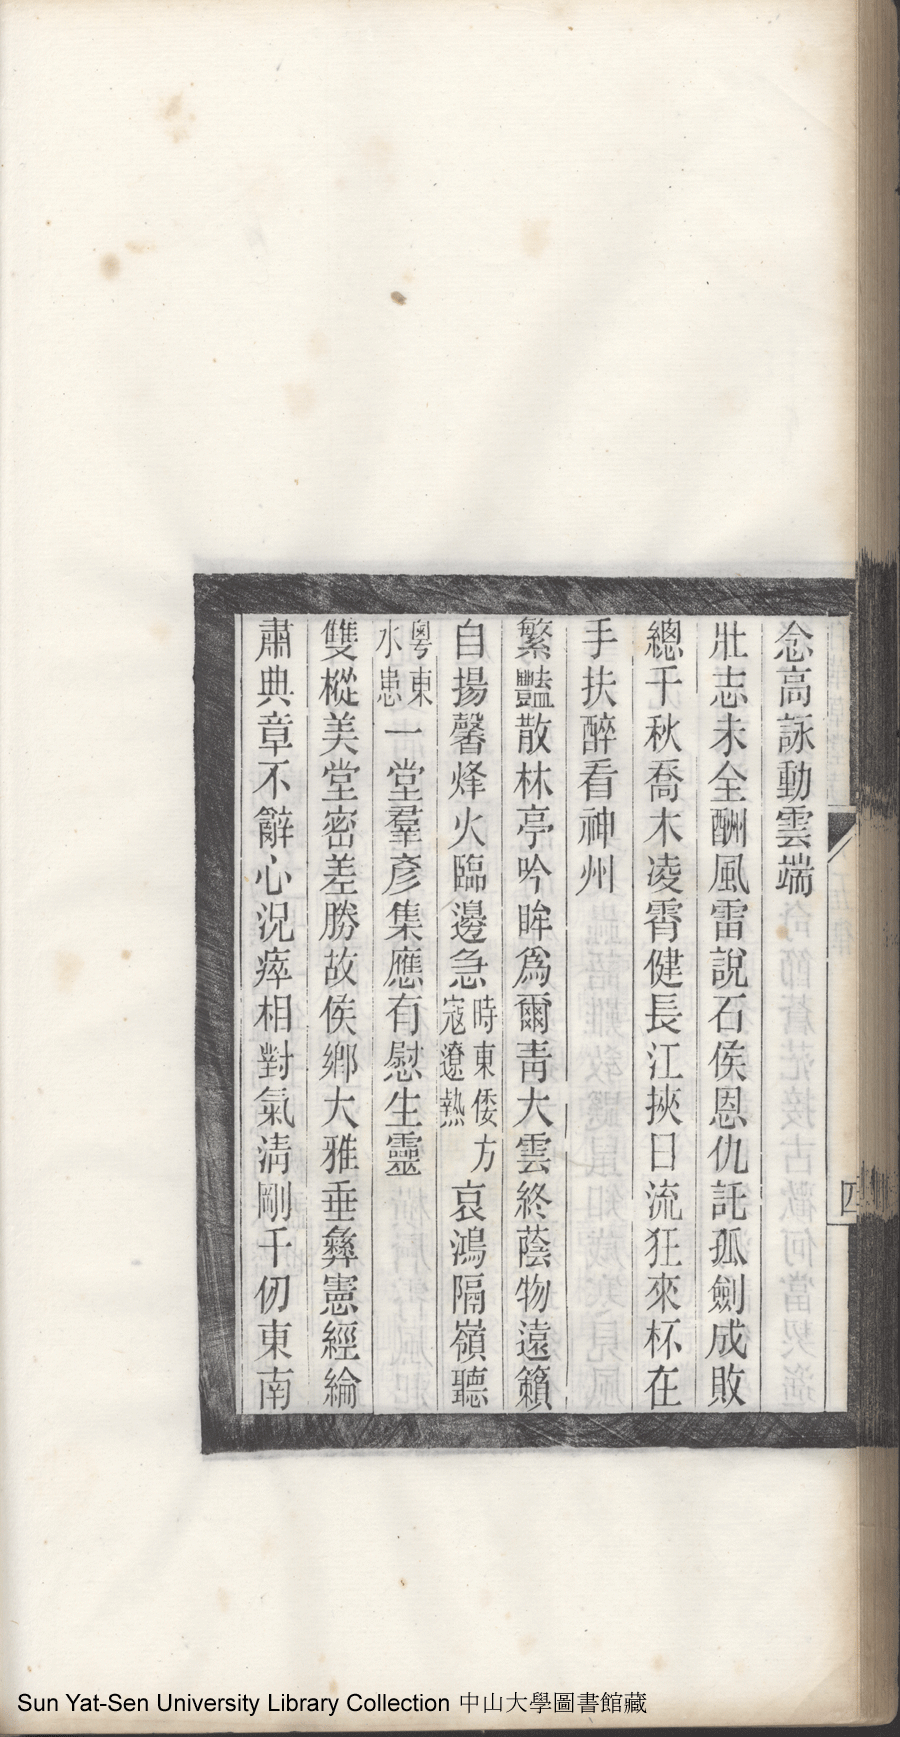 念高詠動雲端
壯志未全酬風雷說石侯恩仇託孤劍成敗
總千秋喬木凌霄健長江挾日流狂來杯在
手扶醉看神州
繁豔散林亭吟眸為爾青大雲終蔭物遠籟
自揚馨烽火臨邊急時東倭方寇遼熱哀鴻隔嶺聽
粵東水患一堂羣彥集應有慰生靈
雙樅美堂密差勝故侯鄉大雅垂彝憲經綸
肅典章不辭心況瘁相對氣淸剛千仞東南
四
Sun Yat-Sen University Library Collection 中山大學圖書館藏